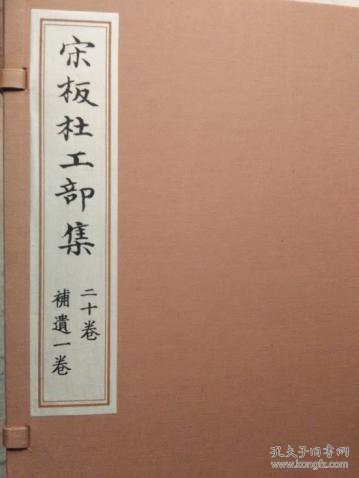 宋板杜工部集
二十卷
補遺一卷
孔夫子旧书网
www.kongfz.com